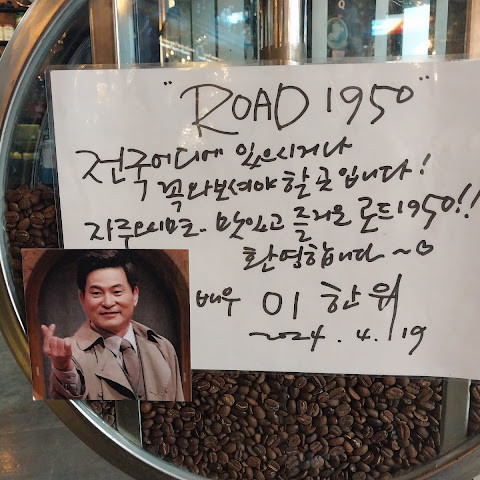 "ROAD 1950"
전국 어디에 있으시거나
꼭 와보셔야 할 곳 입니다!
자주오시므로. 맛있고 즐거운 로드1950!!
환영합니다 ~♡
배우 이 한 위
2024. 4. 19